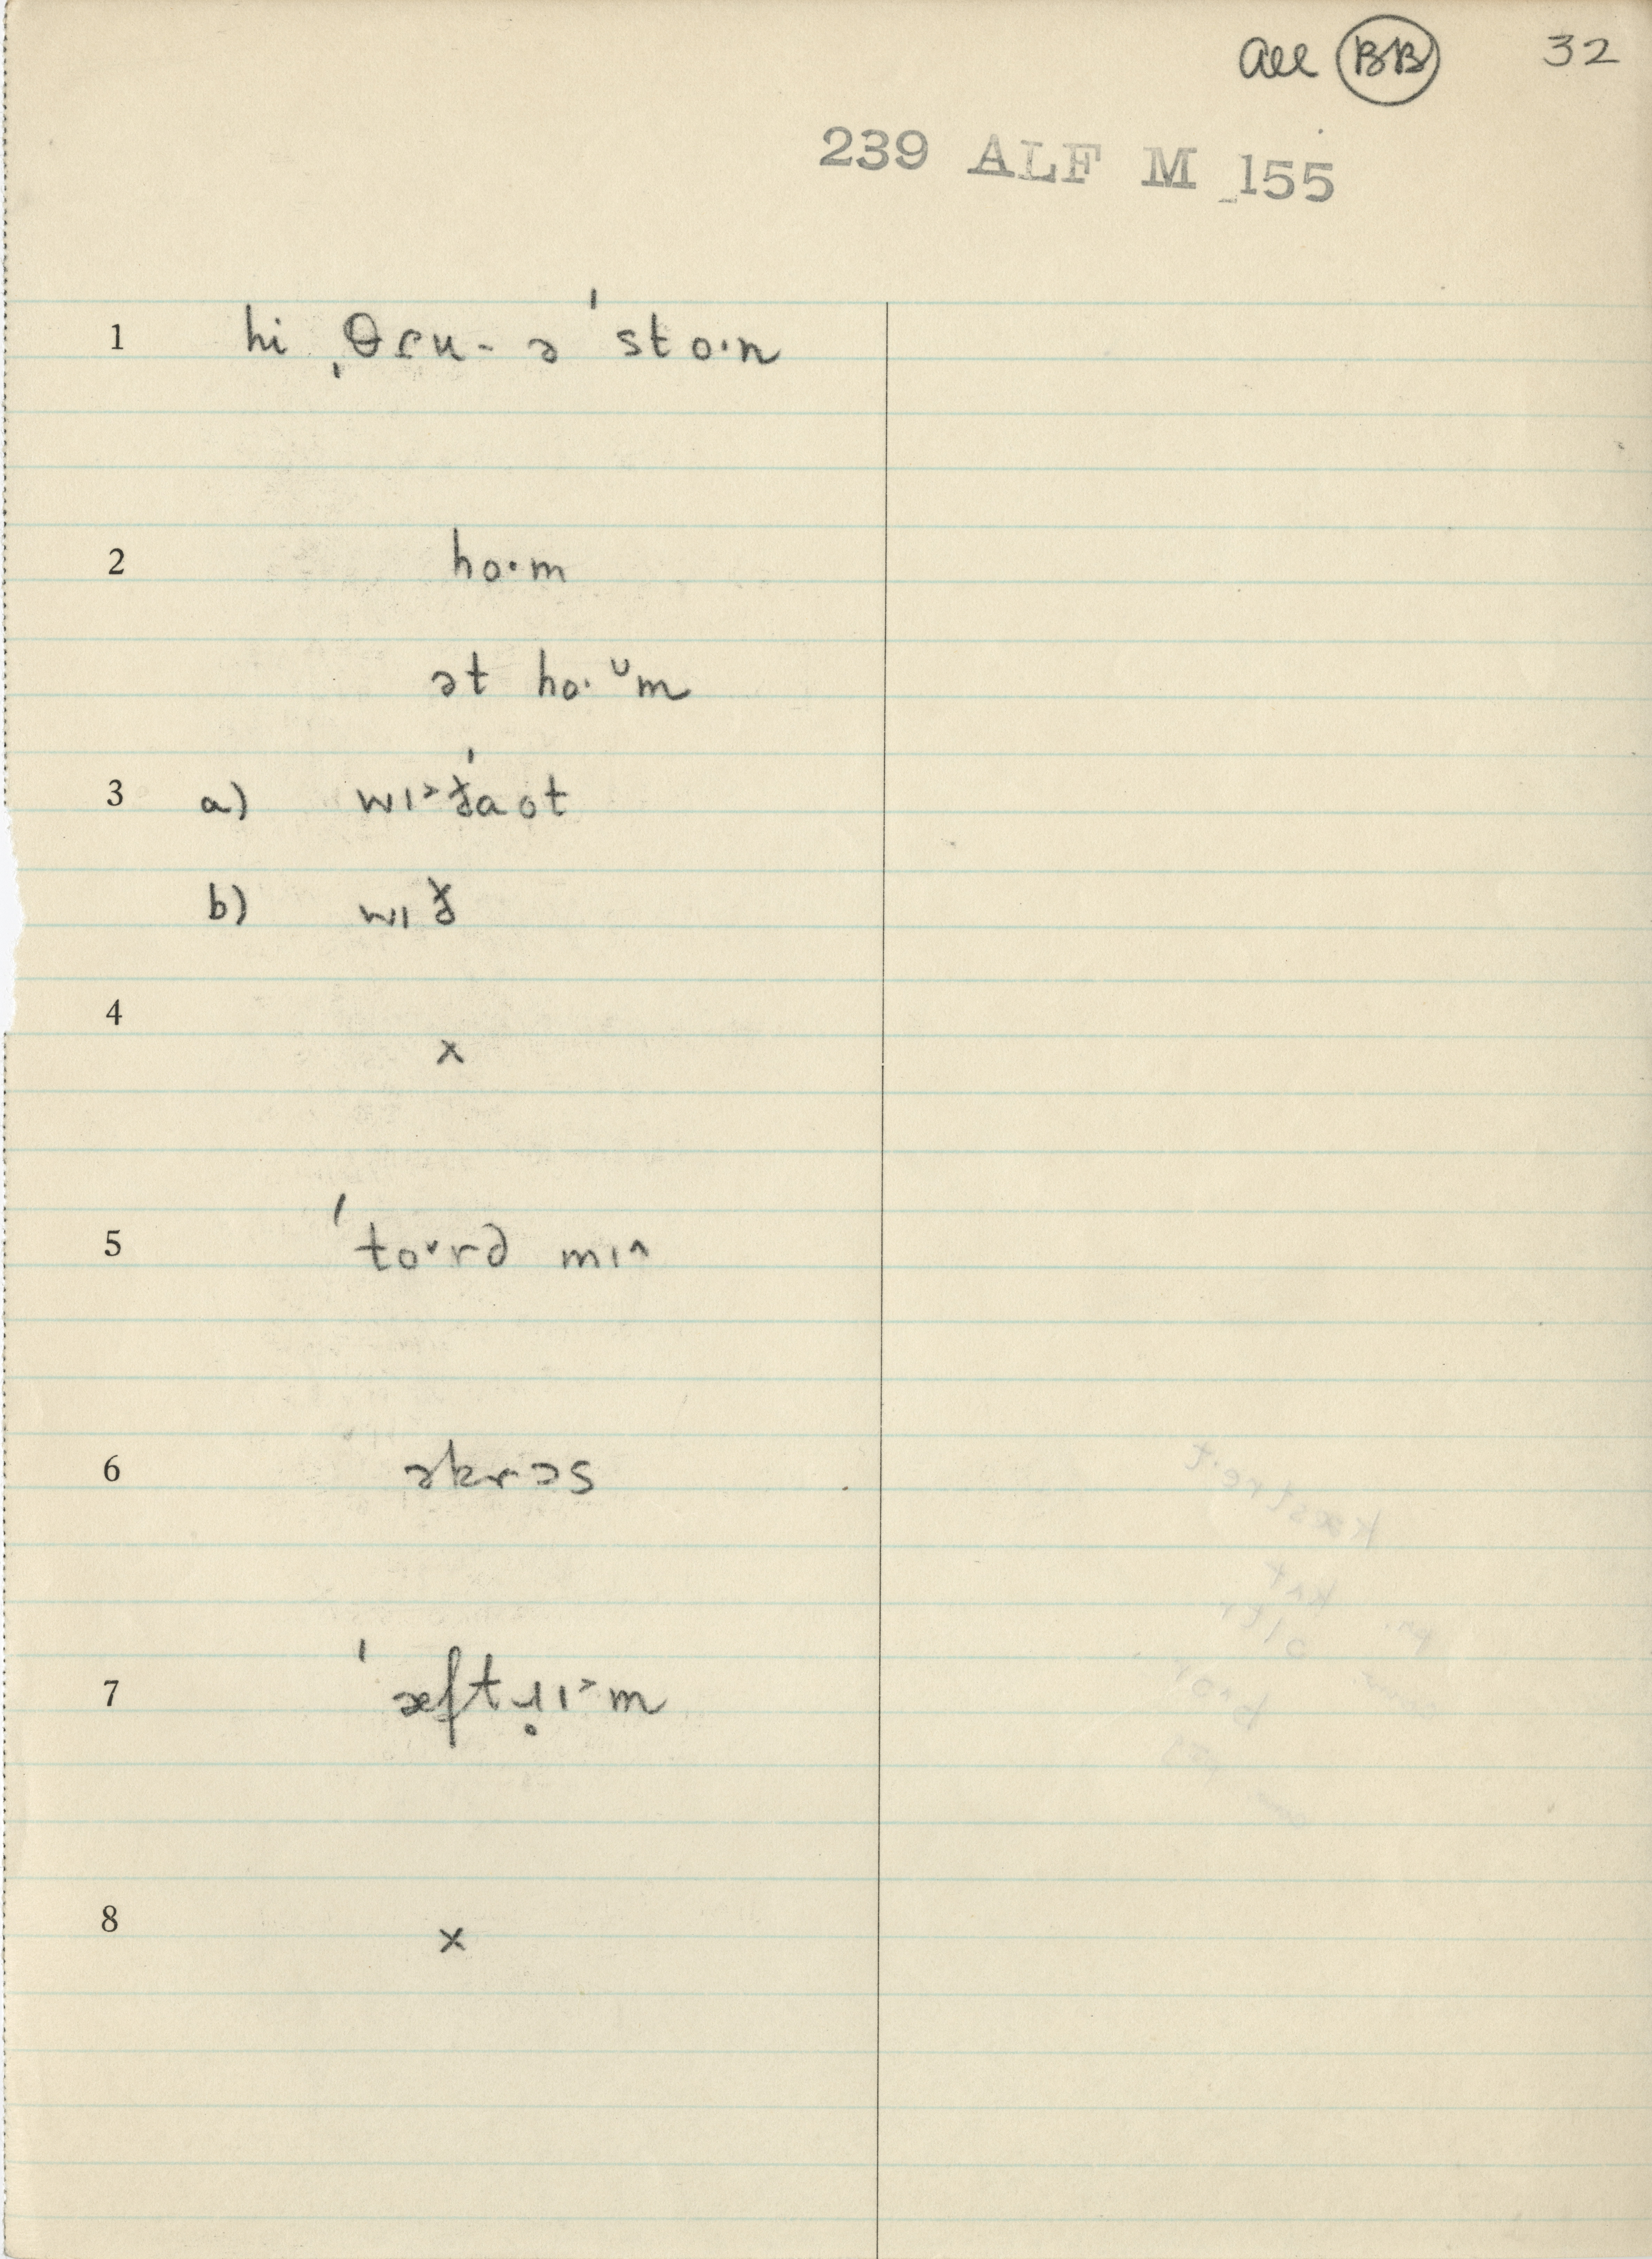 all BB 32
239 ALF M 155
1 hi ˌθɾu- ə ˈsto·n
2 ho·m
ət ho·ᵘm
3 a) wɪ˃ˈðaot
b) wɪð
4 x
5 ˈto˅rd mɪ˄
6 əkrɔs
7 ˈæftɹ̥ɪ˃m
8 x